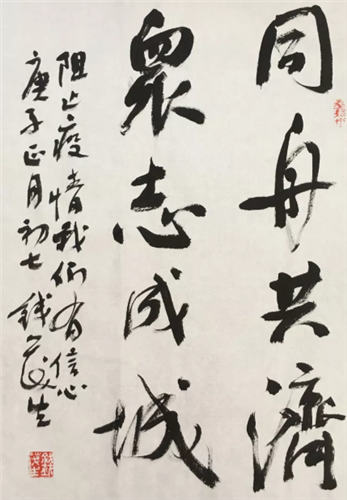 同舟共濟
衆志成城
阻止疫情我们有信心
庚子正月初七钱茂生